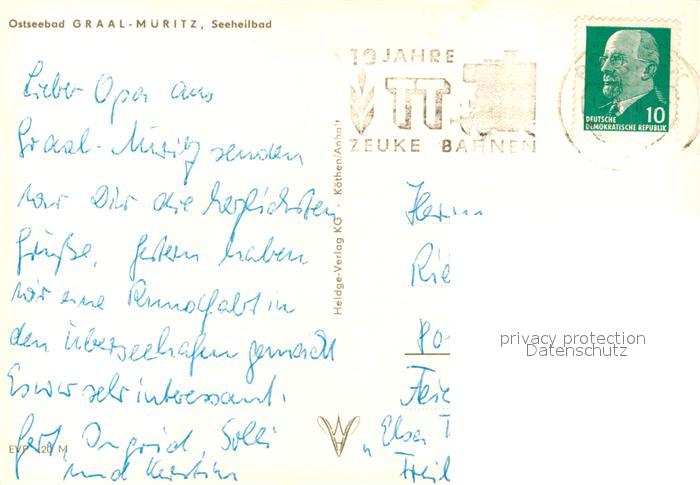 Ostseebad GRAAL-MÜRITZ, Seeheilbad
Lieber Opa aus
Graal-Müritz senden
wir Dir die herzlichsten
Grüße. Gestern haben
wir eine Rundfahrt in
den Überseehafen gemacht
Es war sehr interessant.
Gert, Ingrid,
und Kerstin
EVP 20 M
Heldge-Verlag KG · Köthen/Anhalt
10 JAHRE
TT
ZEUKE BAHNEN
10
DEUTSCHE
DEMOKRATISCHE REPUBLIK
Herrn
Rie
Po
Feie
"Elsa
Freil
privacy protection
Datenschutz